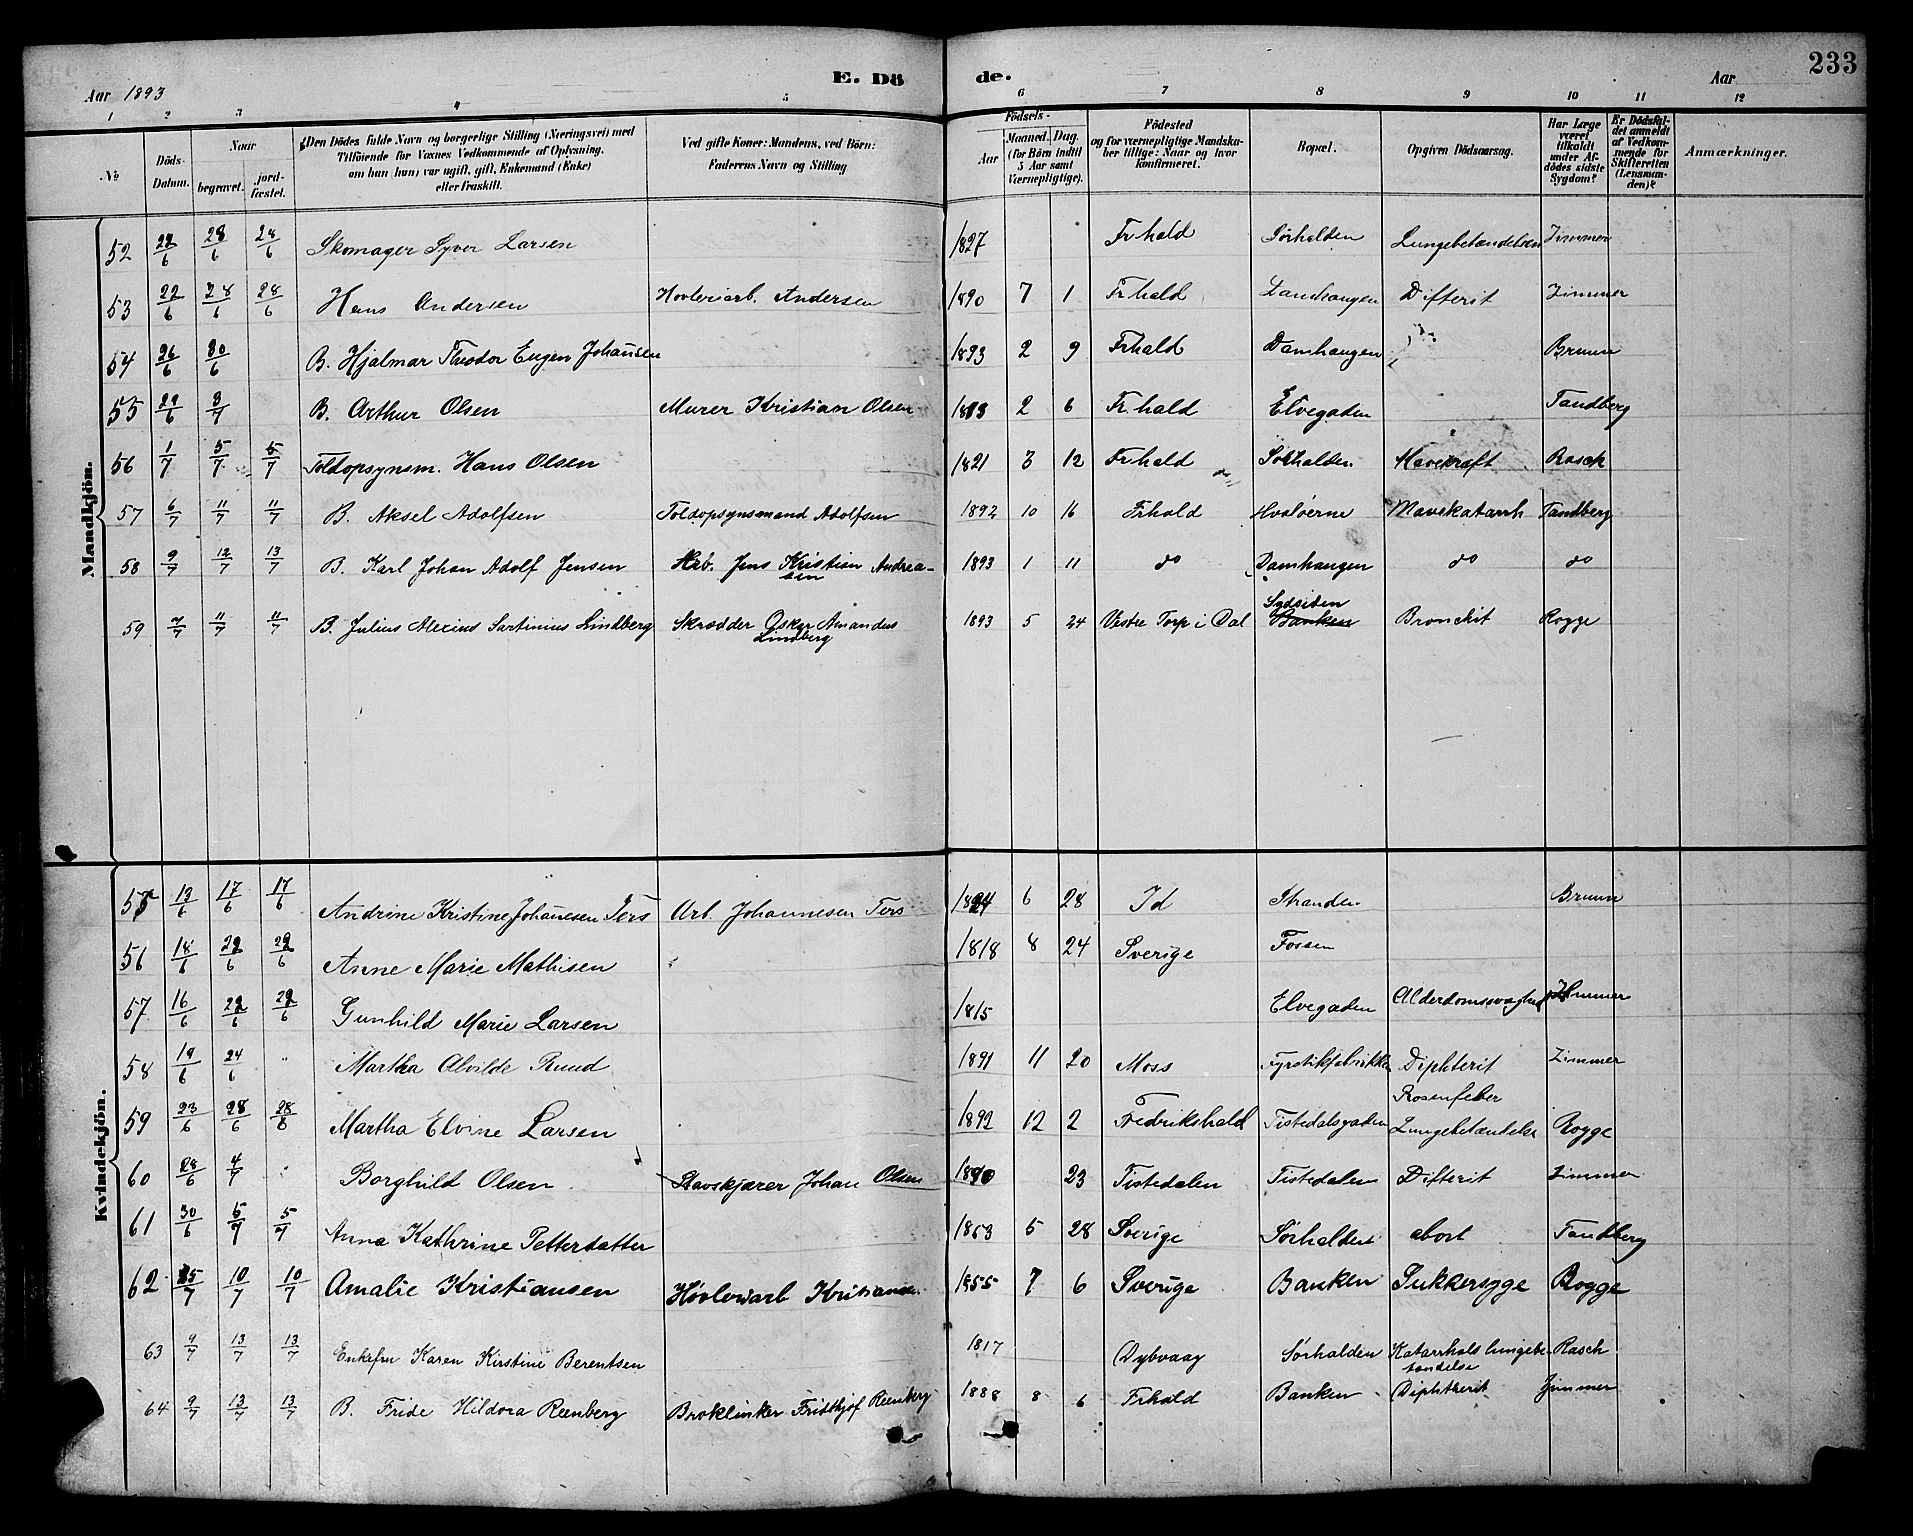 E. Dö de.
233
Aar 1893
Aar
1 2 3 4 5 6 7 8 9 10 11 12
No
Döds-Datum.
Naar
begravet.
jord-fæstet.
Den Dödes fulde Navn og borgerlige Stilling (Næringsvei) med
Tilföiende for Voxnes Vedkommende af Oplysning,
om han (hun) var ugift, gift, Enkemand (Enke)
eller fraskilt.
Ved gifte Koner: Mandens, ved Börn:
Faderens Navn og Stilling
Födsels-
Aar
Maaned.
Dag.
(for Börn indtil
5 Aar samt
Værnepligtige).
Födested
og for værnepligtige Mandska-
ber tillige: Naar og hvor
konfirmeret.
Bopæl.
Opgiven Dödsaarsag.
Har Læge
været
tilkaldt
under Af-
dödes sidste
Sygdom?
Er Dödsfal-
det anmeldt
af Vedkom-
mende for
Skifteretten
(Lensman-
den)?
Anmærkninger.
Mandkjön.
52 28/6 28/6 Skomager Syver Larsen 1827 Fr.hald Sörhalden Lungebetændelse Zimmer
53 22/6 28/6 28/6 Hans Andersen Hövleriarb. Andersen 1890 7 1 Fr.hald Damhaugen Difterit Zimmer
54 26/6 30/6 B. Hjalmar Theodor Eugen Johansen 1893 2 9 Frhald Damhaugen Bruun
55 29/6 3/7 B. Arthur Olsen Murer Kristian Olsen 2 6 Fr.hald Elvegaden Tandberg
56 1/7 5/7 5/7 Toldopsynsm. Hans Olsen 1821 3 12 Fr.hald Sörhalden Mavekræft Rasch
57 6/7 11/7 11/7 B. Aksel Adolfsen Toldopsynsmand Adolfsen 1892 10 16 Frhald Hvaløerne Mavekatarrh Tandberg
58 9/7 12/7 13/7 B. Karl Johan Adolf Jensen Arb. Jens Kristian Andrea-
sen 1893 1 11 do Damhaugen do do
59 7/7 11/7 11/7 B. Julius Alexius Sartinius Lindberg Skrædder Oskar Amandus
Lindberg 1893 5 24 Vestre Torp i Dal Sydsiden
Banken Bronchit Rogge
Kvindekjön.
55 13/6 17/6 17/6 Andrine Kristine Johannesen Ters Arb. Johannesen Ters 6 28 Id Stranden Bruun
56 18/6 22/6 22/6 Anne Marie Mathisen 1818 8 24 Sverige Fossen
57 16/6 22/6 22/6 Gunhild Marie Larsen 1815 Elvegaden Alderdomssvaghed Zimmer
58 19/6 24/6 " Martha Alvilde Ruud 1891 11 20 Moss Fyrstikfabrikken Diphterit Zimmer
59 23/6 28/6 28/6 Martha Elvine Larsen 1892 12 2 Fredrikshald Tistedalsgaden Rosenfeber
Lungebetændelse Rogge
60 28/6 4/7 Borghild Olsen Stavskjærer Johan Olsen 1890 23 Tistedalen Tistedalen Difterit Zimmer
61 30/6 5/7 5/7 Anna Kathrine Petterdatter 1853 5 28 Sverige Sörhalden abort Tandberg
62 5/7 10/7 10/7 Amalie Kristiansen Hövleriarb Kristiansen 1855 7 6 Sverige Banken Sukkersyge Rogge
63 9/7 13/7 13/7 Enkefru Karen Kirstine Berentsen 1817 Dybvaag Sörhalden Katarrhals lungebe-
tændelse Rasch
64 9/7 13/7 13/7 B. Fride Hildora Reenberg Broklinker Fridthjof Reenberg 1888 8 6 Frhald Banken Diphtherit Zimmer